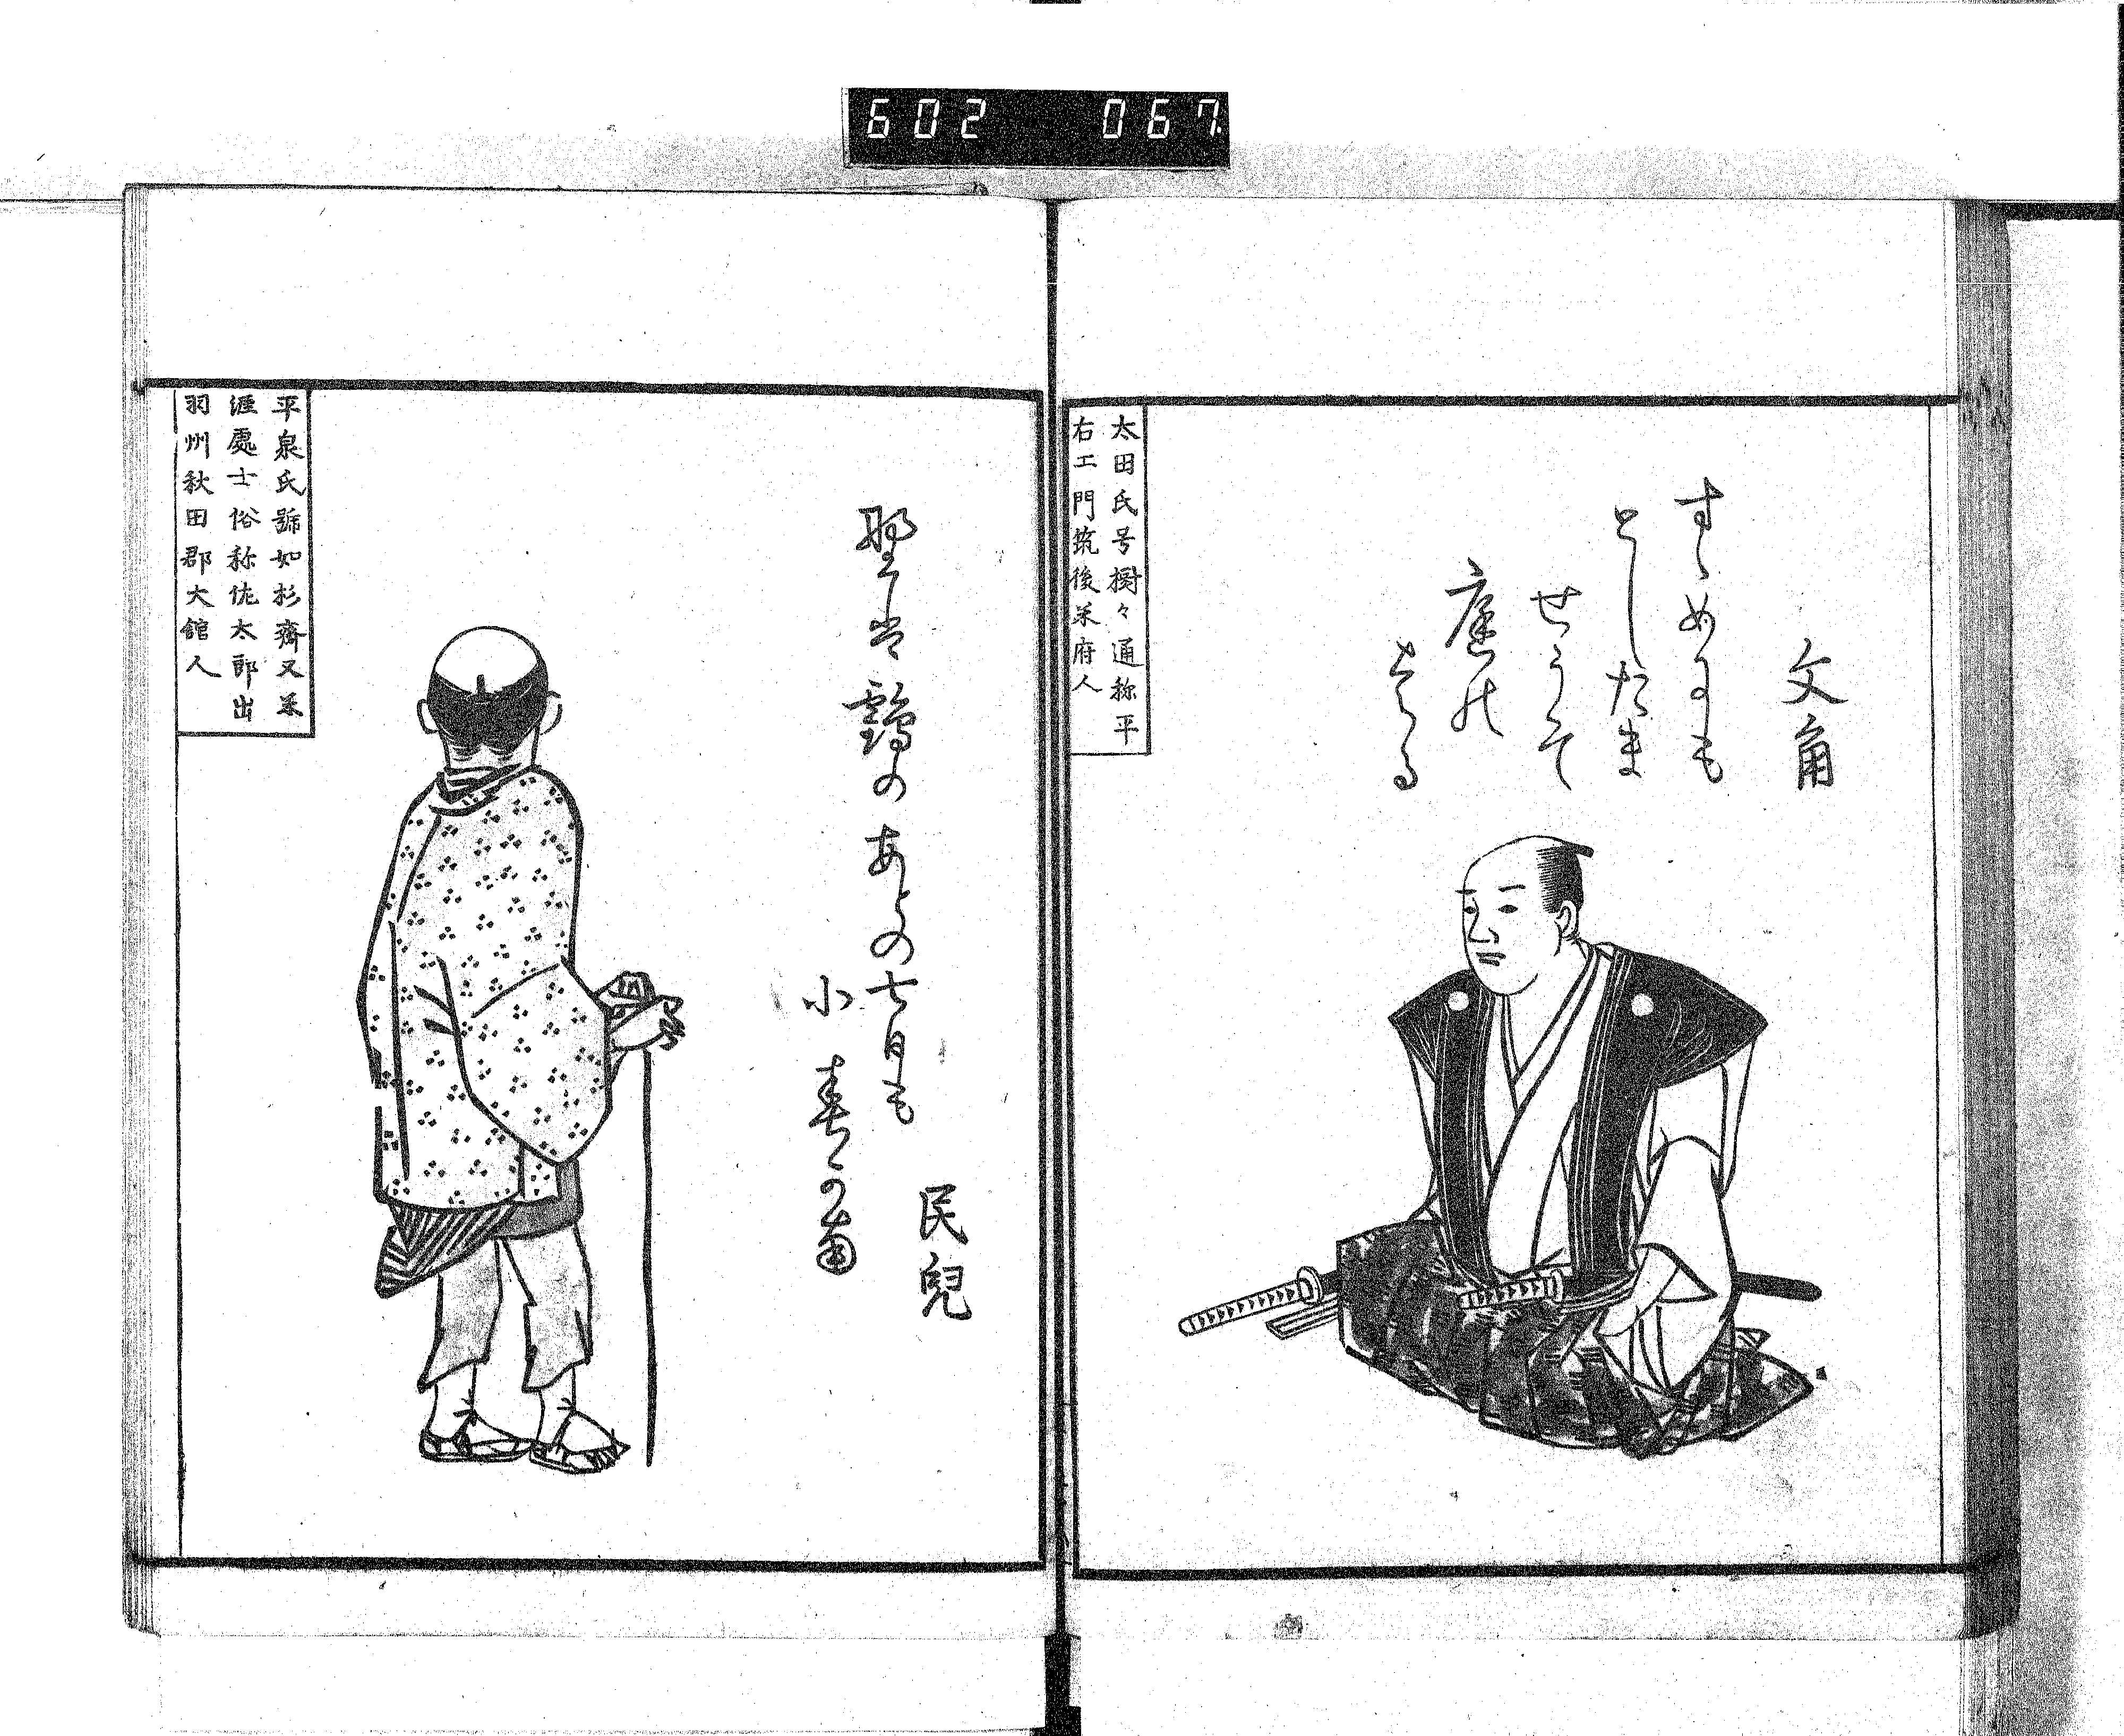 602 067
文角
すゝめにも
としたま
せうそて
庭の
はる
太田氏号樹々通称平
右エ門筑後米府人
民兒
野は鶴のあとの七日も
小春の菊
平泉氏號如杉齋又米
涯處士俗称佐太郎出
羽州秋田郡大館人